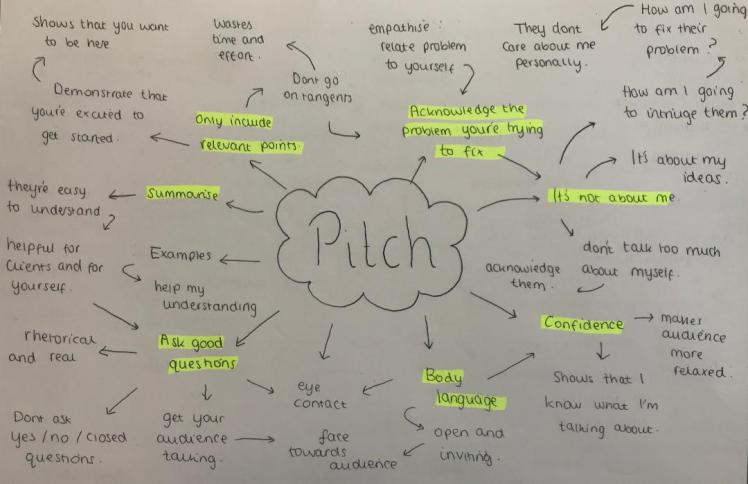 Shows that you want
to be here
Wastes
time and
effort.
empathise:
relate problem
to yourself
They dont
care about me
personally.
How am I going
to fix their
problem?
Dont go
on tangents
Demonstrate that
you're excited to
get started.
Only include
relevant points.
Acknowledge the
problem you're trying
to fix
How am I going
to intriuge them?
It's about my
ideas.
It's not about me.
they're easy
to understand
Summarise
Pitch
don't talk too much
about myself.
acknowledge
them.
helpful for
clients and for
yourself.
Examples
help my
understanding
Confidence
makes
audience
more
relaxed.
rhetorical
and real
Ask good
questions
eye
contact
Body
language
Shows that I
know what I'm
talking about.
Dont ask
yes/no/closed
questions.
get your
audience
talking.
face
towards
audience
open and
inviting.